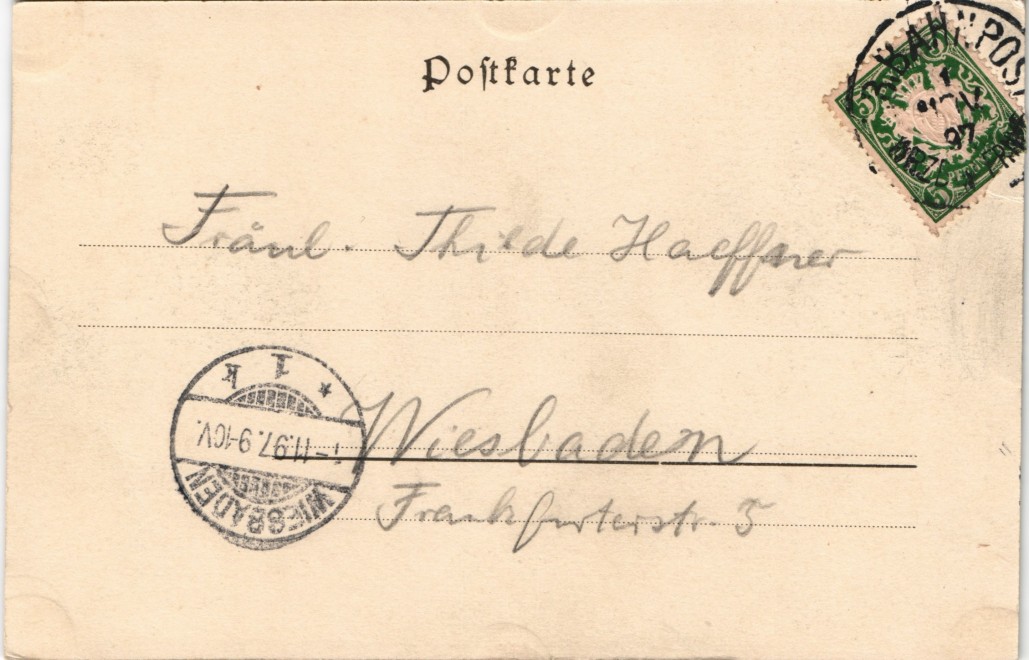 Postkarte
BAHNPOST
97
5
5
Fräul. Thilde Haeffner
* 1 k
11.97. 9-10V.
WIESBADEN
Wiesbaden
Frankfurterstr. 5